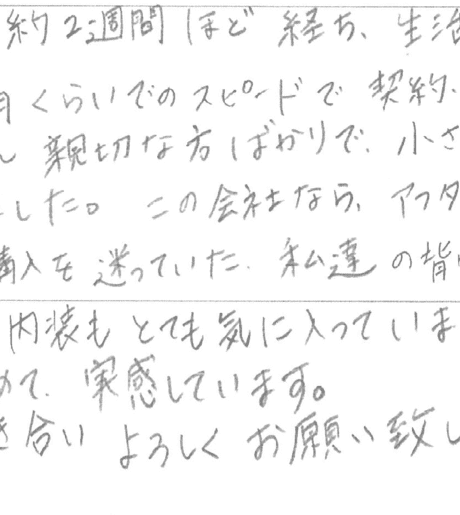 約2週間ほど経ち、生活
月くらいでのスピードで契約、
親切な方ばかりで、小さ
した。この会社なら、アフタ
購入を迷っていた、私達の背
内装もとても気に入っていま
めて、実感しています。
き合いよろしくお願い致し